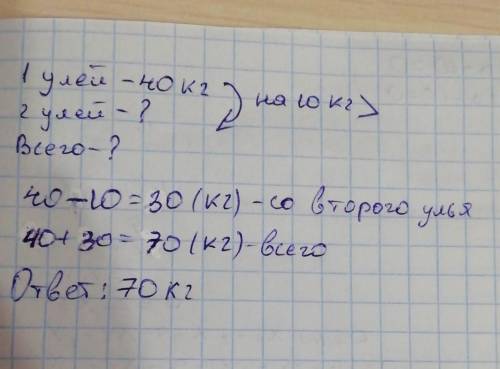 1 улей - 40 кг
2 улей - ? на 10 кг >
Всего - ?
40 - 10 = 30 (кг) - со второго улья
40 + 30 = 70 (кг) - всего
Ответ: 70 кг